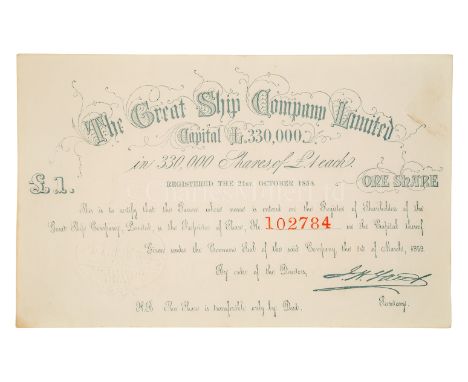 The Great Ship Company Limited
Capital £330,000
in 330,000 Shares of £1 each
REGISTERED THE 21st. OCTOBER 1858
£1.
ONE SHARE
This is to certify that the Person whose name is entered on the Register of Shareholders of the
Great Ship Company, Limited, is the Proprietor of Share, No. 102784 in the Capital thereof
Given under the Common Seal of the said Company the 1st of March, 1859.
By order of the Directors,
Secretary.
N.B. This Share is transferable only by Deed.